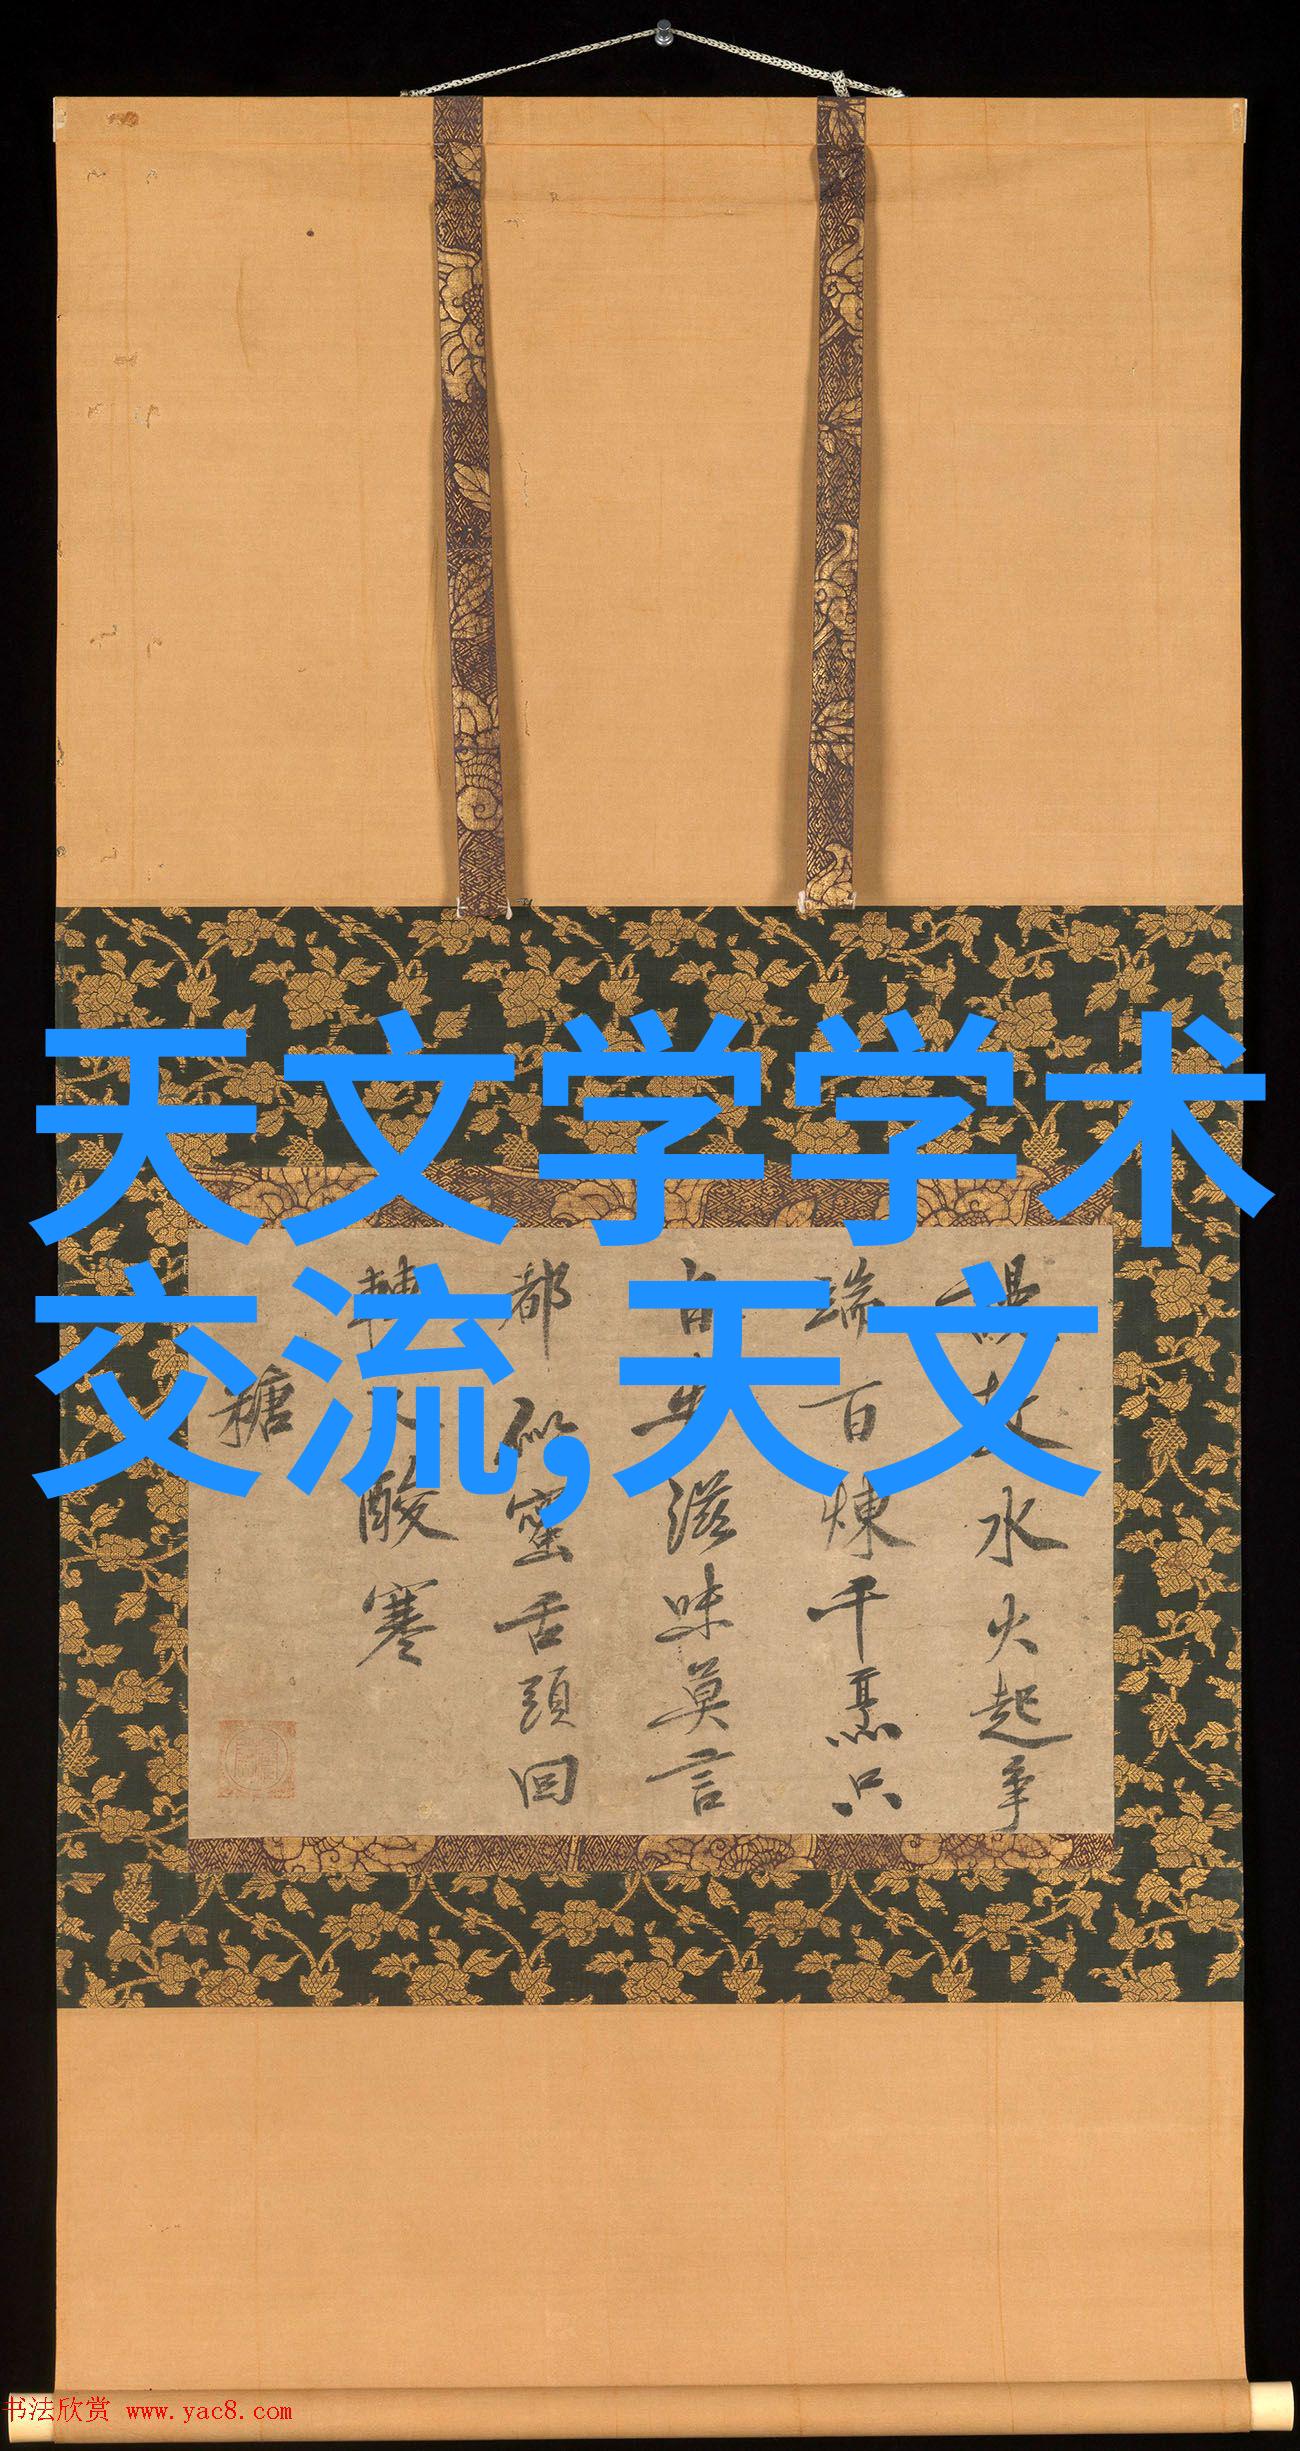 天文学学术
交流,天文
端百煉千烹只
滋味莫言
都似蜜舌頭回
酸寒
糖
水火起爭
书法欣赏 www.yac8.com